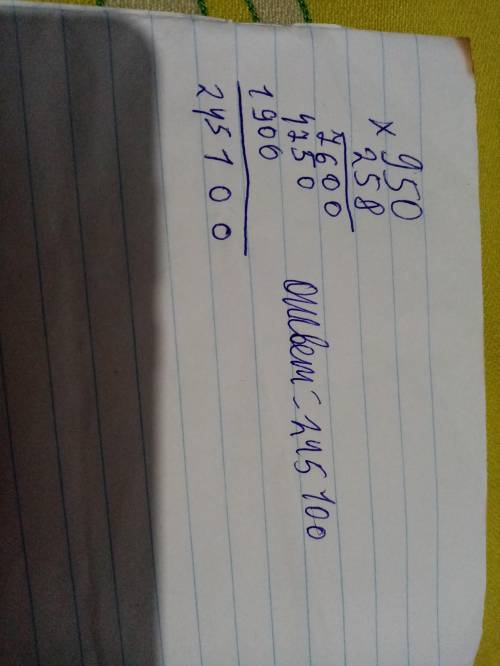 × 950
258
7600
4750
1900
245100
Ответ - 245100